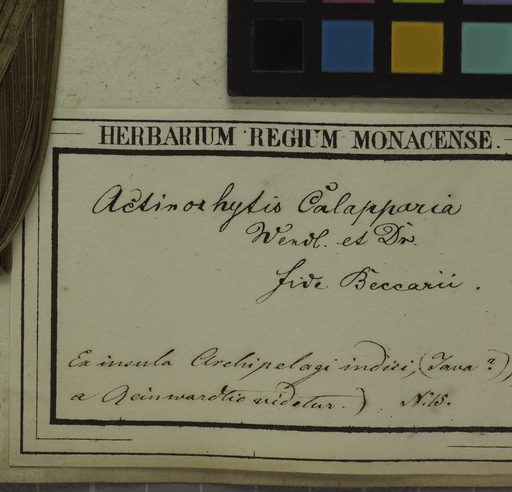 HERBARIUM REGIUM MONACENSE.
Actinorhytis Calapparia
Wendl. et Dr.
fide Beccarii.
Ex insula Archipelagi indici, (Java?),
a Reinwardtio videtur.) N.15.